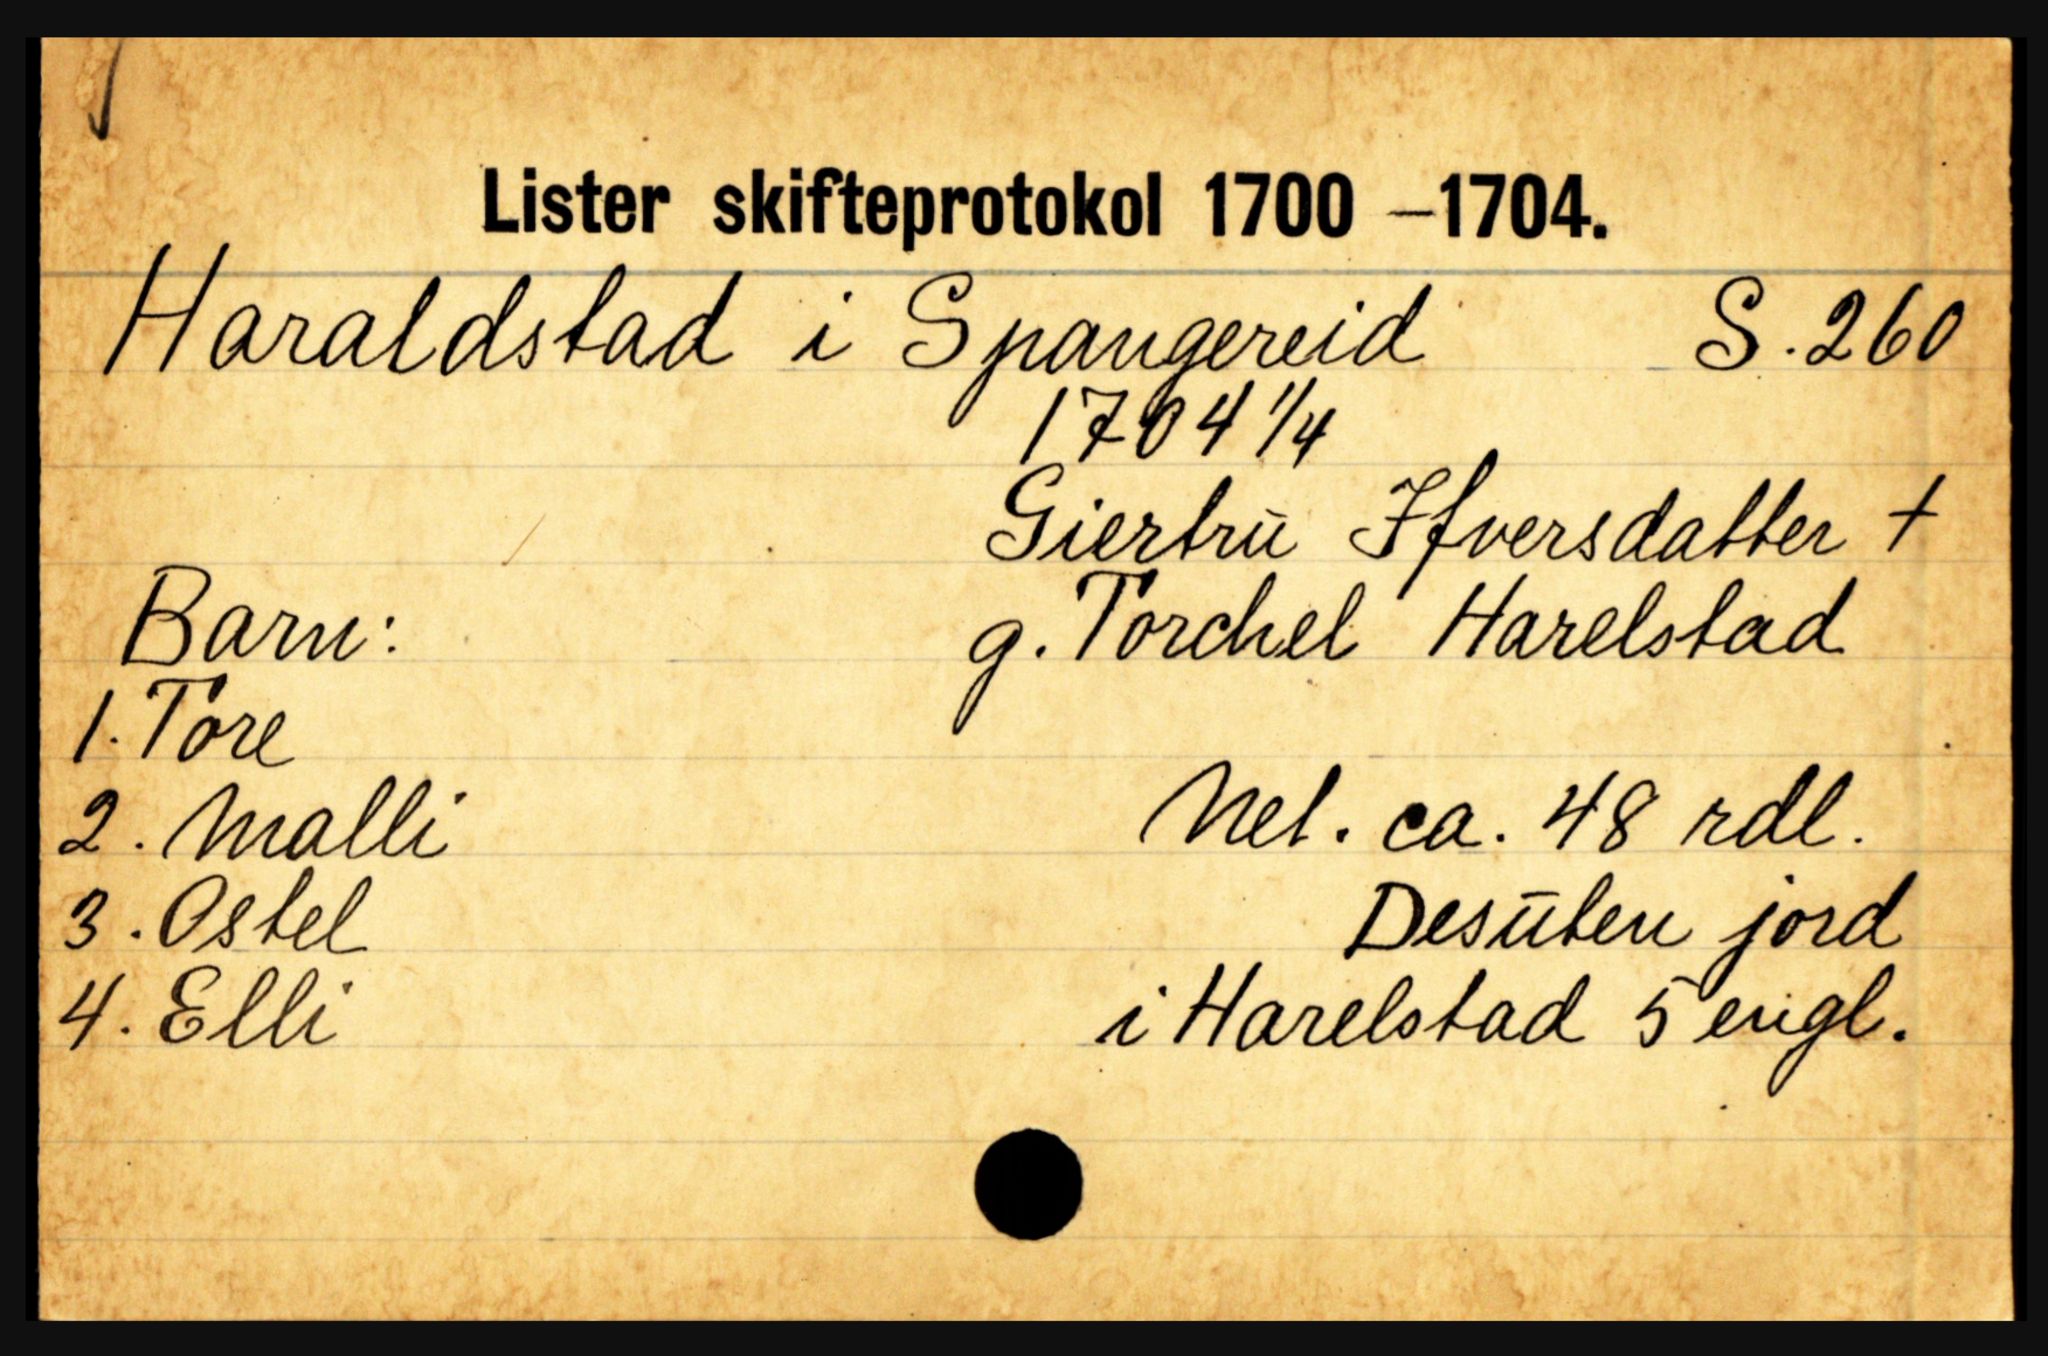 Lister skifteprotokol 1700 – 1704.
Haraldstad i Spangereid S. 260
1704 1/4
Giertrū Ifversdatter †
Barn: g. Torchel Harelstad
1. Tore
2. Malli Net. ca. 48 rdl.
3. Ostel Desūten jord
4. Elli i Harelstad 5 engl.